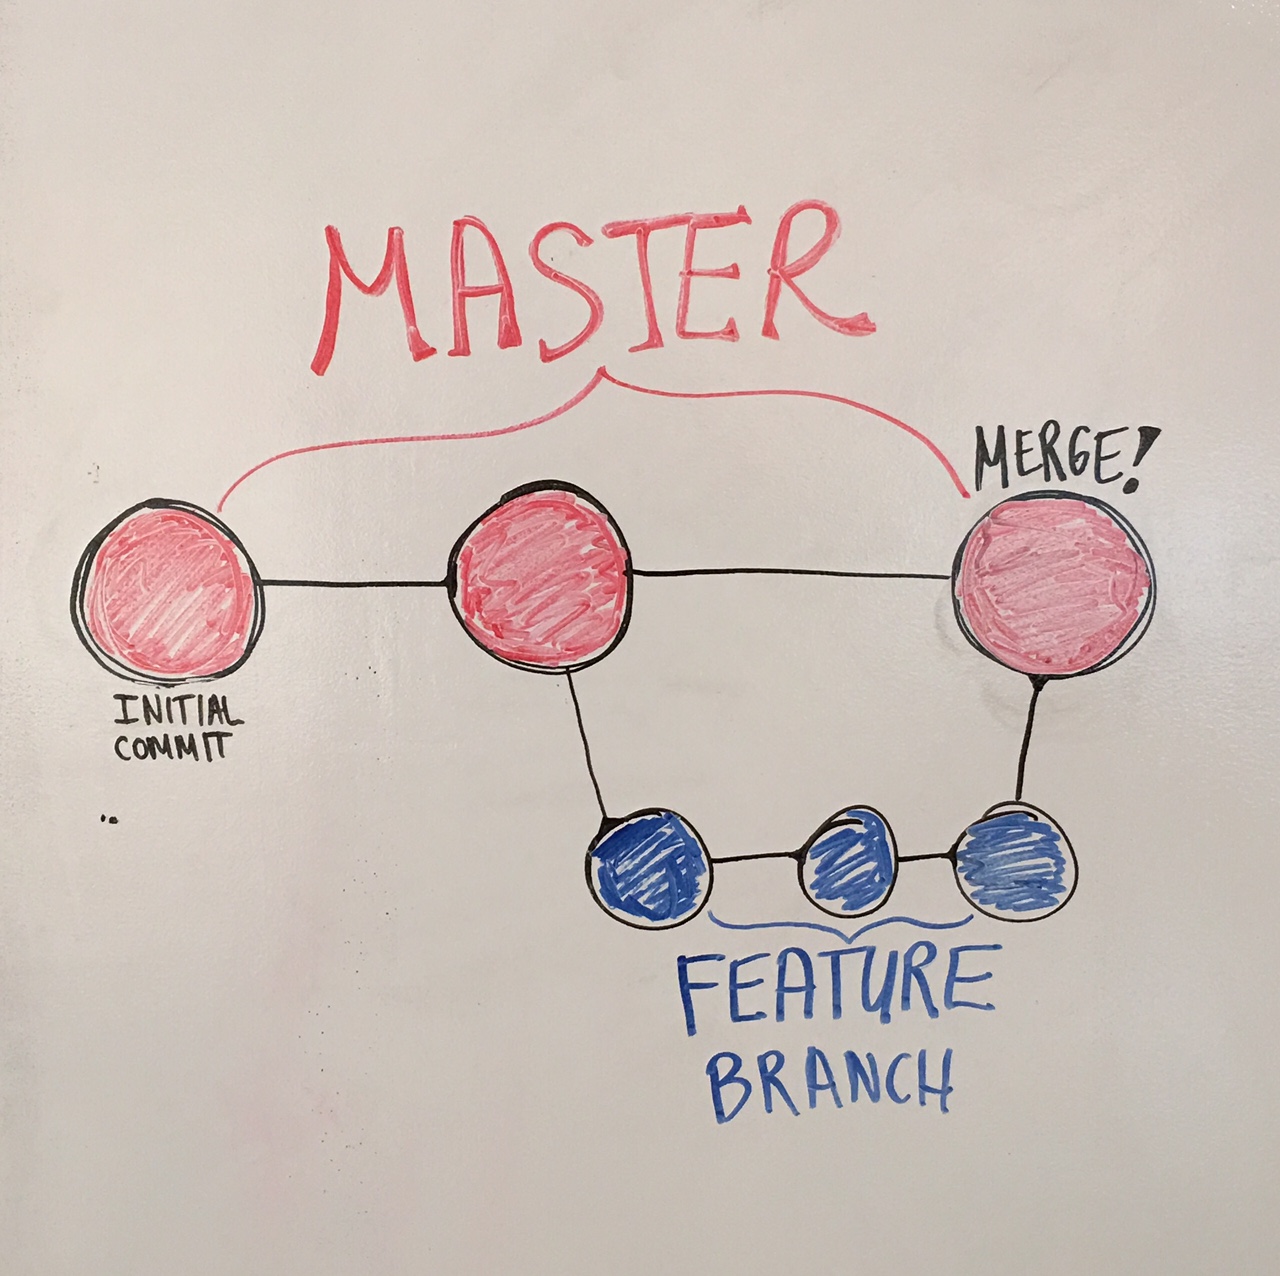 MASTER
MERGE!
INITIAL
COMMIT
FEATURE
BRANCH